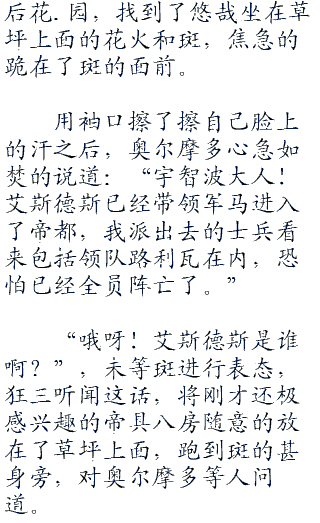 后花.园，找到了悠哉坐在草
坪上面的花火和斑，焦急的
跪在了斑的面前。
用袖口擦了擦自己脸上
的汗之后，奥尔摩多心急如
焚的说道：“宇智波大人！
艾斯德斯已经带领军马进入
了帝都，我派出去的士兵看
来包括领队路利瓦在内，恐
怕已经全员阵亡了。”
“哦呀！艾斯德斯是谁
啊？”，未等斑进行表态，
狂三听闻这话，将刚才还极
感兴趣的帝具八房随意的放
在了草坪上面，跑到斑的甚
身旁，对奥尔摩多等人问
道。